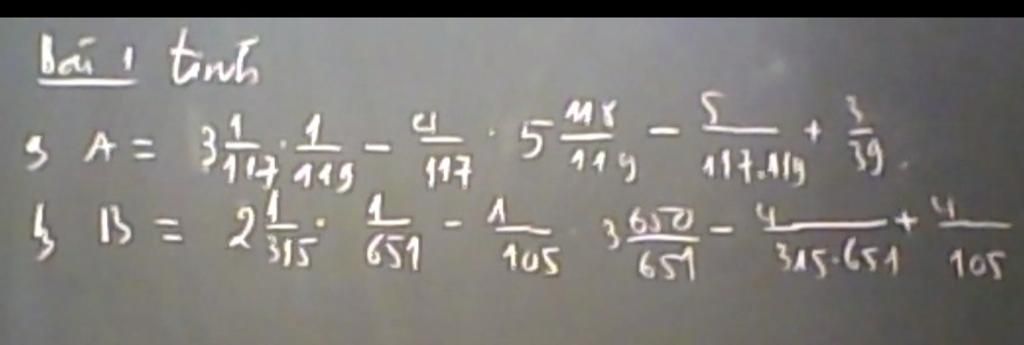 Bài 1 tính
a, A = 3 1/117 . 1/119 - 4/117 . 5 118/119 - 5/117.119 + 3/39.
b, B = 2 1/315 . 1/651 - 1/105 . 3 650/651 - 4/315.651 + 4/105